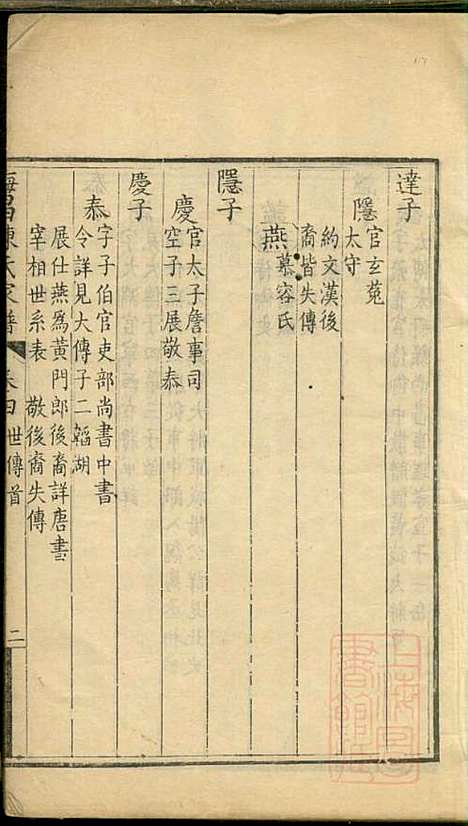 達子
隱官玄菟
太守
約文漢後
裔皆失傳
燕慕容氏
隱子
慶官太子詹事司
空子三展敬泰
慶子
泰字子伯官吏部尚書中書
令詳見大傳子二韜湖
展仕燕爲黃門郎後裔詳唐書
宰相世系表 敬後裔失傳
海昌陳氏家譜 世傳首 二
上海圖書館藏